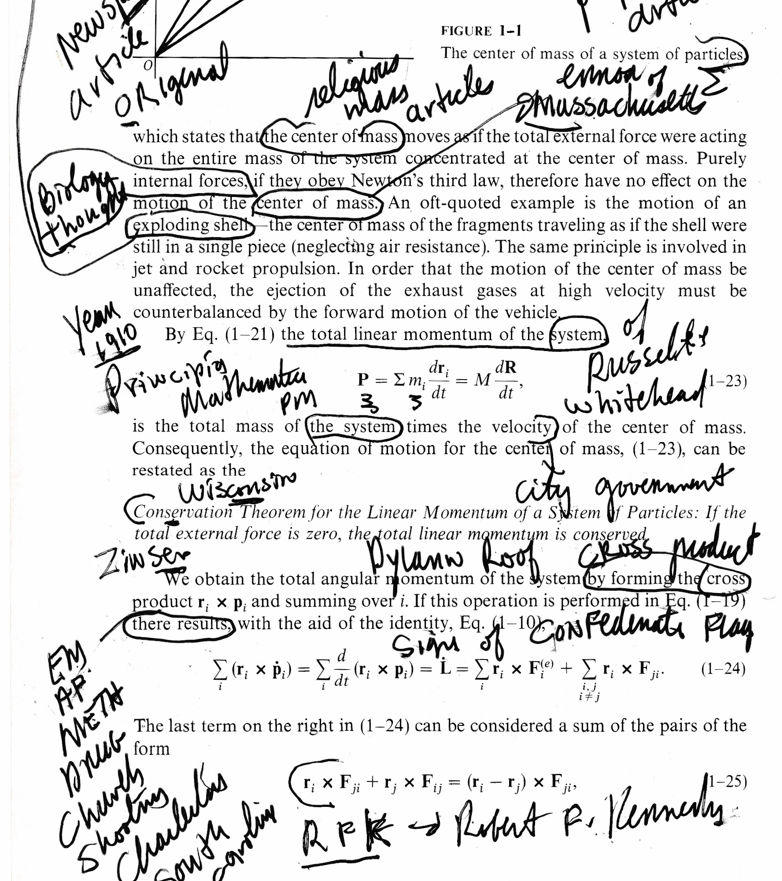 News
article
ORiginal
O
FIGURE 1-1
The center of mass of a system of particles.
religious
mass articles
Massachusetts
which states that the center of mass moves as if the total external force were acting
on the entire mass of the system concentrated at the center of mass. Purely
internal forces, if they obey Newton's third law, therefore have no effect on the
motion of the center of mass. An oft-quoted example is the motion of an
exploding shell—the center of mass of the fragments traveling as if the shell were
still in a single piece (neglecting air resistance). The same principle is involved in
jet and rocket propulsion. In order that the motion of the center of mass be
unaffected, the ejection of the exhaust gases at high velocity must be
counterbalanced by the forward motion of the vehicle.
Biology
thought
Year
1910
By Eq. (1–21) the total linear momentum of the system,
of
Russell &
Whitehead
Principia
Mathematica
PM
P = Σ mᵢ drᵢ/dt = M dR/dt, (1–23)
is the total mass of the system times the velocity of the center of mass.
Consequently, the equation of motion for the center of mass, (1–23), can be
restated as the
Wisconsin
city government
Conservation Theorem for the Linear Momentum of a System of Particles: If the
total external force is zero, the total linear momentum is conserved.
Dylann Roof cross product
We obtain the total angular momentum of the system by forming the cross
product rᵢ × pᵢ and summing over i. If this operation is performed in Eq. (1–19)
there results, with the aid of the identity, Eq. (1–10),
Sign of Confederate Flag
Σᵢ (rᵢ × ṗᵢ) = Σᵢ d/dt (rᵢ × pᵢ) = L̇ = Σᵢ rᵢ × Fᵢ⁽ᵉ⁾ + Σ i,j i≠j rᵢ × Fⱼᵢ. (1–24)
EM
AP.
METH
Drug
Church
Shooting
Charleston
South
Carolina
The last term on the right in (1–24) can be considered a sum of the pairs of the
form
rᵢ × Fⱼᵢ + rⱼ × Fᵢⱼ = (rᵢ − rⱼ) × Fⱼᵢ, (1–25)
RFK → Robert F. Kennedy